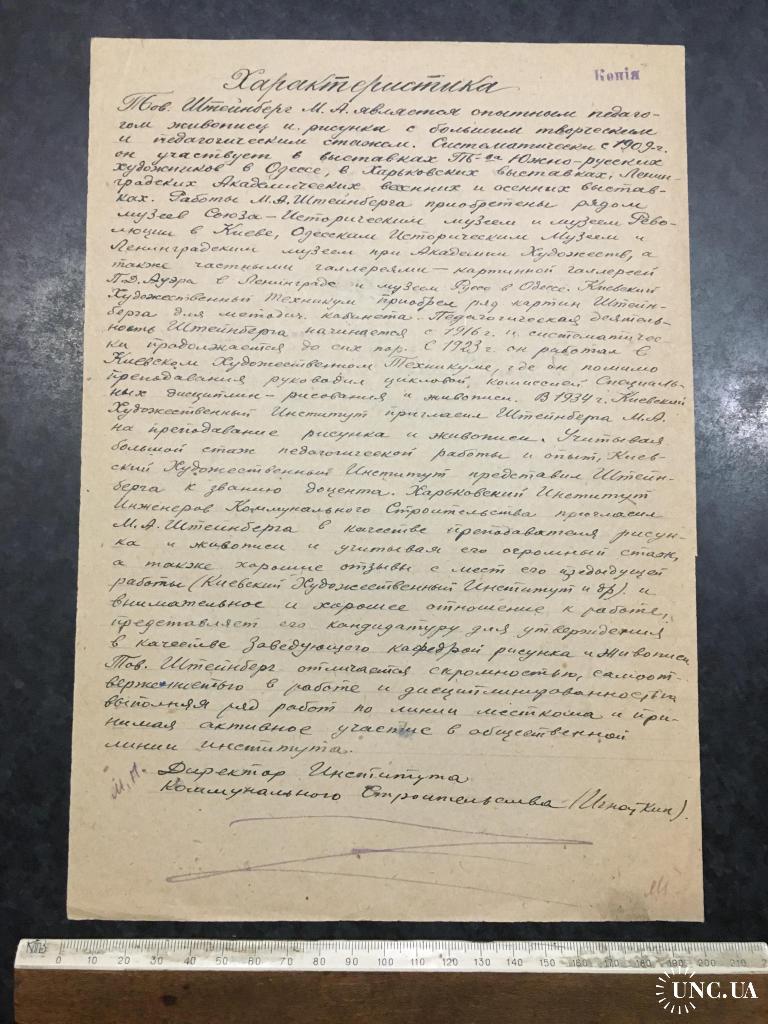 Копія
Характеристика
Тов. Штейнберг М.А. является опытным педаго-
гом живописи и рисунка с большим творческим
и педагогическим стажом. Систематически с 1909 г.
он участвует в выставках Т-ва Южно-русских
художников в Одессе, в Харьковских выставках, Ленин-
градских Академических весенних и осенних выстав-
ках. Работы М.А. Штейнберга приобретены рядом
музеев Союза – Историческим музеем и музеем Рево-
люции в Киеве, Одесским Историческим Музеем и
Ленинградским музеем при Академии Художеств, а
также частными галлереями – картинной галлереей
П.Э. Ауэра в Ленинграде и музеем Руссо в Одессе. Киевский
Художественный Техникум приобрел ряд картин Штейн-
берга для методич. кабинета. Педагогическая деятель-
ность Штейнберга начинается с 1916 г. и систематичес-
ки продолжается до сих пор. С 1923 г. он работал в
Киевском Художественном Техникуме, где он помимо
преподавания руководил цикловой комиссией специаль-
ных дисциплин – рисования и живописи. В 1934 г. Киевский
Художественный Институт пригласил Штейнберга М.А.
на преподавание рисунка и живописи. Учитывая
большой стаж педагогической работы и опыт, Киев-
ский Художественный Институт представил Штейн-
берга к званию доцента. Харьковский Институт
Инженеров Коммунального Строительства пригласил
М.А. Штейнберга в качестве преподавателя рисун-
ка и живописи и учитывая его огромный стаж,
а также хорошие отзывы с мест его предыдущей
работы (Киевский Художественный Институт и др). и
внимательное и хорошее отношение к работе,
представляет его кандидатуру для утверждения
в качестве Заведующего кафедрой рисунка и живописи
Тов. Штейнберг отличается скромностью, самоот-
верженностью в работе и дисциплинированностью
выполняя ряд работ по линии месткома и при-
нимая активное участие в общественной
линии института.
М.П. Директор Института
Коммунального Строительства (Игнаткин).
0 10 20 30 40 50 60 70 80 90 100 110 120 130 140 150 160 170 180 190 200 210
UNC.UA